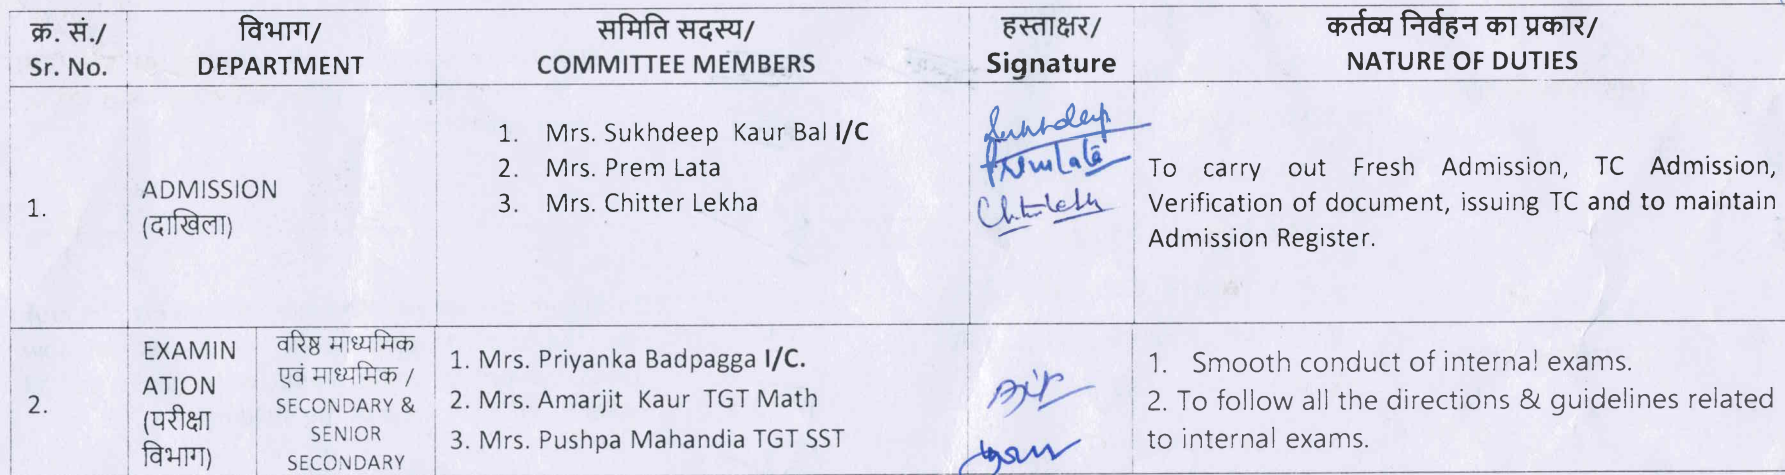 क्र. सं./ विभाग/ समिति सदस्य/ हस्ताक्षर/ कर्तव्य निर्वहन का प्रकार/
Sr. No. DEPARTMENT COMMITTEE MEMBERS Signature NATURE OF DUTIES
1.
ADMISSION
(दाखिला)
1. Mrs. Sukhdeep Kaur Bal I/C
2. Mrs. Prem Lata
3. Mrs. Chitter Lekha
Sukhdeep
Prem Lata
To carry out Fresh Admission, TC Admission,
Verification of document, issuing TC and to maintain
Admission Register.
2.
EXAMIN
ATION
(परीक्षा
विभाग)
वरिष्ठ माध्यमिक
एवं माध्यमिक /
SECONDARY &
SENIOR
SECONDARY
1. Mrs. Priyanka Badpagga I/C.
2. Mrs. Amarjit Kaur TGT Math
3. Mrs. Pushpa Mahandia TGT SST
1. Smooth conduct of internal exams.
2. To follow all the directions & guidelines related
to internal exams.